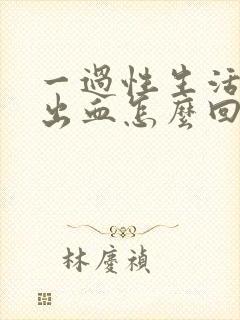 一過性生活
出血怎麼回
林慶禎